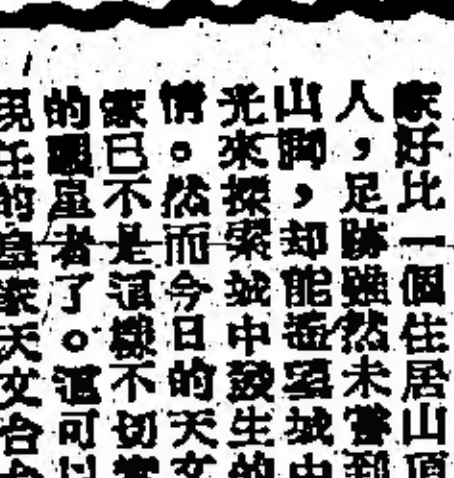 家好比一個住居山頂
人，足跡雖然未嘗到
山洞，却能盡望城中
光來探索城中發生的
情。然而今日的天文
家已不是這樣不切實
的眼星者了。這可以
現任的皇家天文台台